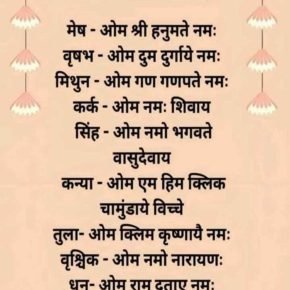 मेष - ओम श्री हनुमते नमः
वृषभ - ओम दुम दुर्गाये नमः
मिथुन - ओम गण गणपते नमः
कर्क - ओम नमः शिवाय
सिंह - ओम नमो भगवते
वासुदेवाय
कन्या - ओम एम हिम क्लिक
चामुंडाये विच्चे
तुला- ओम क्लिम कृष्णायै नमः
वृश्चिक - ओम नमो नारायणः
धन- ओम राम दताए नमः